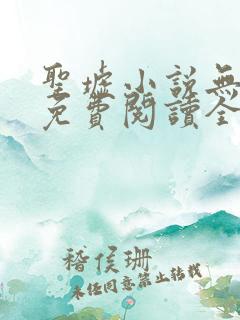 聖墟小說無
免費閱讀全
稽侯珊
未任同意禁止转載